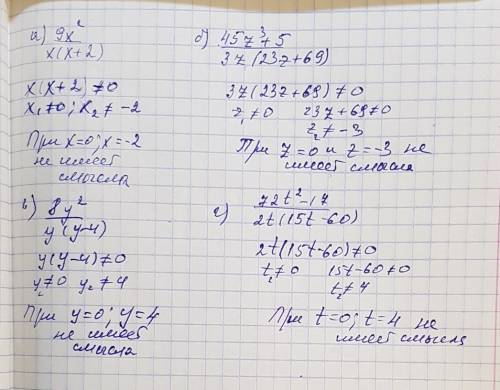 а) 9x²
x(x+2)
x(x+2)≠0
x₁≠0; x₂≠-2
При x=0; x=-2
не имеет
смысла
б) 45z³+5
3z(23z+69)
3z(23z+69)≠0
z₁≠0 23z+69≠0
z₂≠-3
При z=0 и z=-3 не
имеет смысла
в) 8y²
y(y-4)
y(y-4)≠0
y₁≠0 y₂≠4
При y=0; y=4
не имеет
смысла
г) 72t²-17
2t(15t-60)
2t(15t-60)≠0
t₁≠0 15t-60≠0
t₂≠4
При t=0; t=4 не
имеет смысла